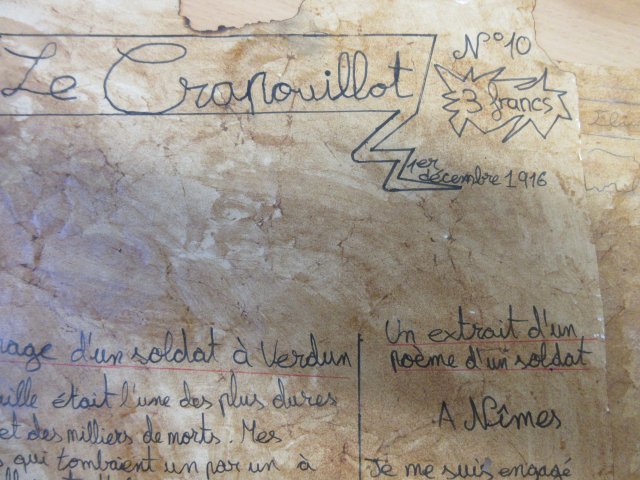 Le Crapouillot
N°10
3 francs
1er
décembre 1916
d'un soldat à Verdun
était l'une des plus dures
et des milliers de morts. Mes
qui tombaient un par un à
Un extrait d'un
poème d'un soldat
A Nîmes
Je me suis engagé